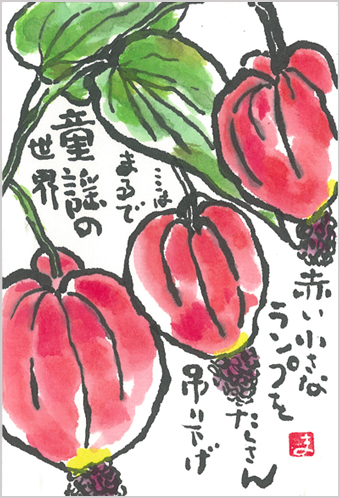 赤い小さな
ランプを
たくさん
吊り下げ
ここは
まるで
童謡の
世界
ま